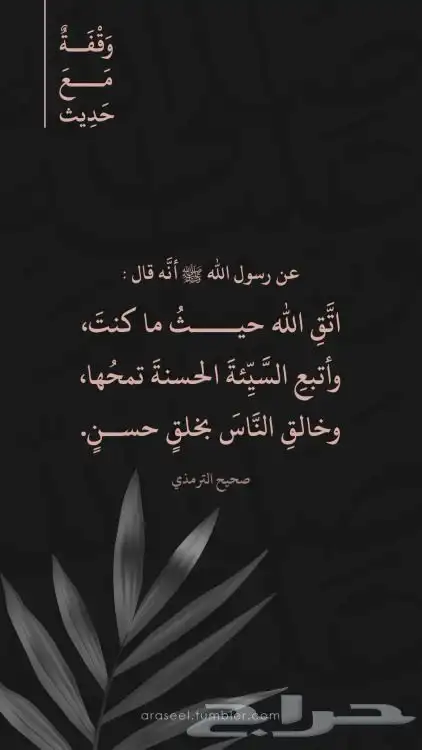 وَقْفَـــةٌ
مَـــــعَ
حَدِيث
عن رسول الله ﷺ أنَّه قال :
اتَّقِ الله حيـــــــثُ ما كنتَ،
وأتبعِ السَّيِّئةَ الحسنةَ تمحُها،
وخالقِ النَّاسَ بخلقٍ حســـنٍ.
صحيح الترمذي
araseel.tumbler.com
حراج